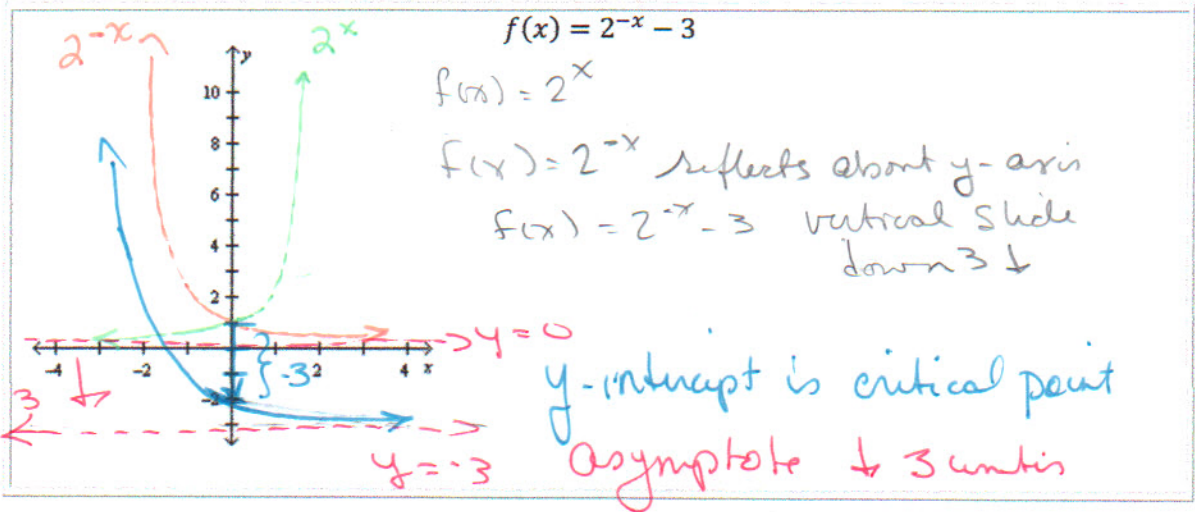 f(x) = 2^{-x} − 3
2^{-x}
2^x
y
10
8
6
4
2
-4
-2
2
4
x
-2
f(x) = 2^x
f(x) = 2^{-x} reflects about y-axis
f(x) = 2^{-x} - 3 vertical slide
down 3 ↓
y = 0
{ -3
3 ↓
y-intercept is critical point
y = -3
asymptote ↓ 3 units